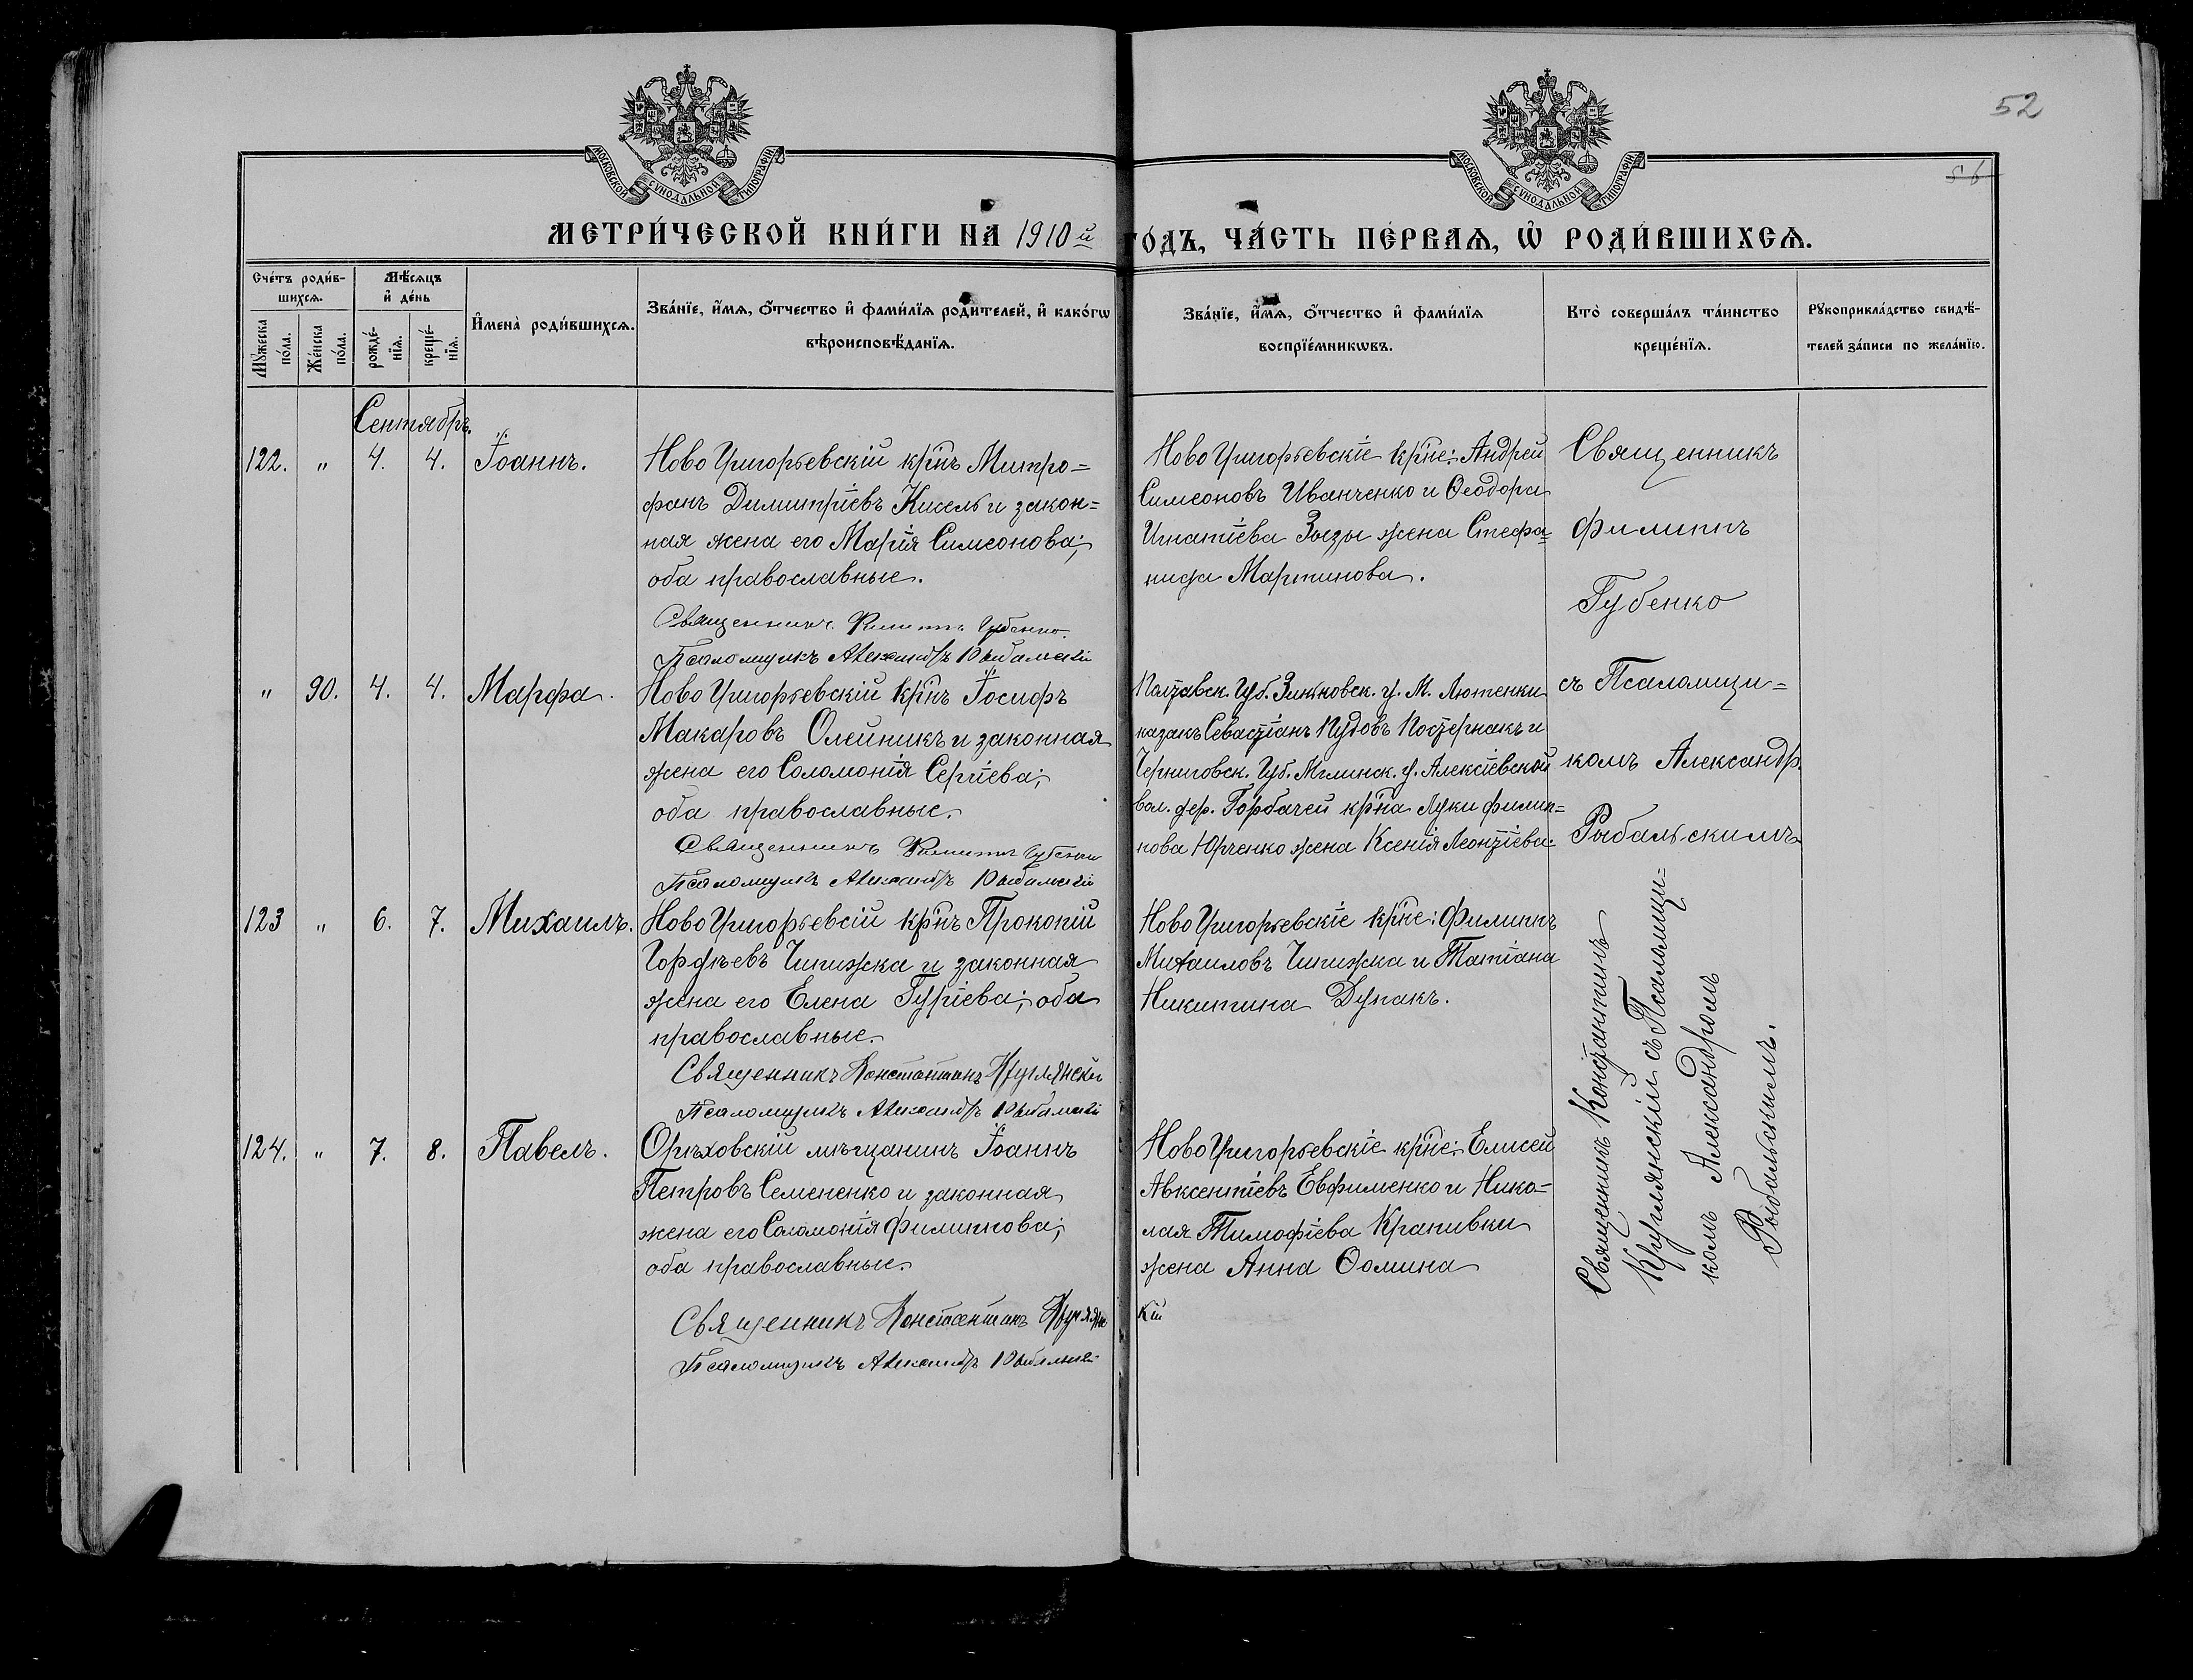 52
56
МОСКОВСКОЙ СѴНОДАЛЬНОЙ ТИПОГРАФІИ
МОСКОВСКОЙ СѴНОДАЛЬНОЙ ТИПОГРАФІИ
МЕТРИ́ЧЕСКОЙ КНИ́ГИ НА 1910й ГО́ДЪ, ЧА́СТЬ ПЕ́РВАѦ, Ѡ҆ РОДИ́ВШИХСѦ.
Сче́тъ роди́в-
шихсѧ.
Мꙋ́жеска
по́ла.
Же́нска
по́ла.
Мѣ́сѧцъ
и҆ де́нь
рожде́-
нїѧ.
креще́-
нїѧ.
И҆мена̀ роди́вшихсѧ.
Зва́нїе, и҆́мѧ, ѻ҆́тчество и҆ фами́лїѧ роди́телей, и҆ како́гѡ
вѣроисповѣ́данїѧ.
Зва́нїе, и҆́мѧ, ѻ҆́тчество и҆ фами́лїѧ
воспрїе́мникѡвъ.
Кто̀ соверша́лъ та́инство
креще́нїѧ.
Рꙋкоприкла́дство свидѣ́-
телей за́писи по жела́нїю.
Сентябрь.
122. " 4. 4. Іоаннъ.
Ново Григорьевскій крнъ Митро=
фанъ Димитріевъ Кисель и закон=
ная жена его Марія Симеонова;
оба православные.
Священникъ Филиппъ Губенко.
Псаломщикъ Александръ Рыбальскій
Ново Григорьевскіе крне: Андрей
Симеоновъ Иванченко и Ѳеодора
Игнатіева Зызы жена Стефа=
нида Мартинова.
" 90. 4. 4. Марфа.
Ново Григорьевскій крнъ Іосифъ
Макаровъ Олейникъ и законная
жена его Соломонія Сергіева;
оба православные.
Священникъ Филиппъ Губенко
Псаломщикъ Александръ Рыбальскій
Полтавск. Губ. Зиньковск. у. М. Лютенки
казакъ Севастіанъ Пудовъ Постернакъ и
Черниговск. Губ. Мглинск. у. Алексіевской
вол. дер. Горбачей крна Луки Филип=
пова Юрченко жена Ксенія Леонтіева.
Священникъ
Филиппъ
Губенко
съ Псаломщи=
комъ Александр.
Рыбальскимъ
123 " 6. 7. Михаилъ.
Ново Григорьевсій крнъ Прокопій
Гордѣевъ Чипижка и законная
жена его Елена Гуріева; оба
православные.
Священникъ Константинъ Круглянскій
Псаломщикъ Александръ Рыбальскій
Ново Григорьевскіе крне: Филиппъ
Михаиловъ Чипижка и Татіана
Никитина Дупакъ.
124. " 7. 8. Павелъ.
Орѣховскій мѣщанинъ Іоаннъ
Петровъ Семененко и законная
жена его Соломонія Филиппова;
оба православные.
Священникъ Константинъ Круглянскій
Псаломщикъ Александръ Рыбальскій
Ново Григорьевскіе крне: Елисей
Авксентіевъ Евфименко и Нико=
лая Тимофіева Крапивки
жена Анна Ѳомина
Священникъ Константинъ
Круглянскій съ Псаломщи=
комъ Александромъ
Рыбальскимъ.